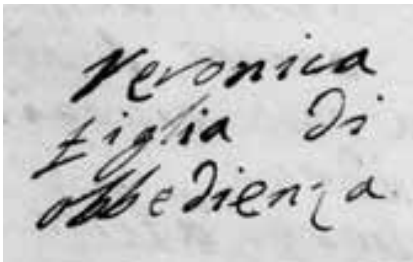 Veronica
figlia di
obbedienza